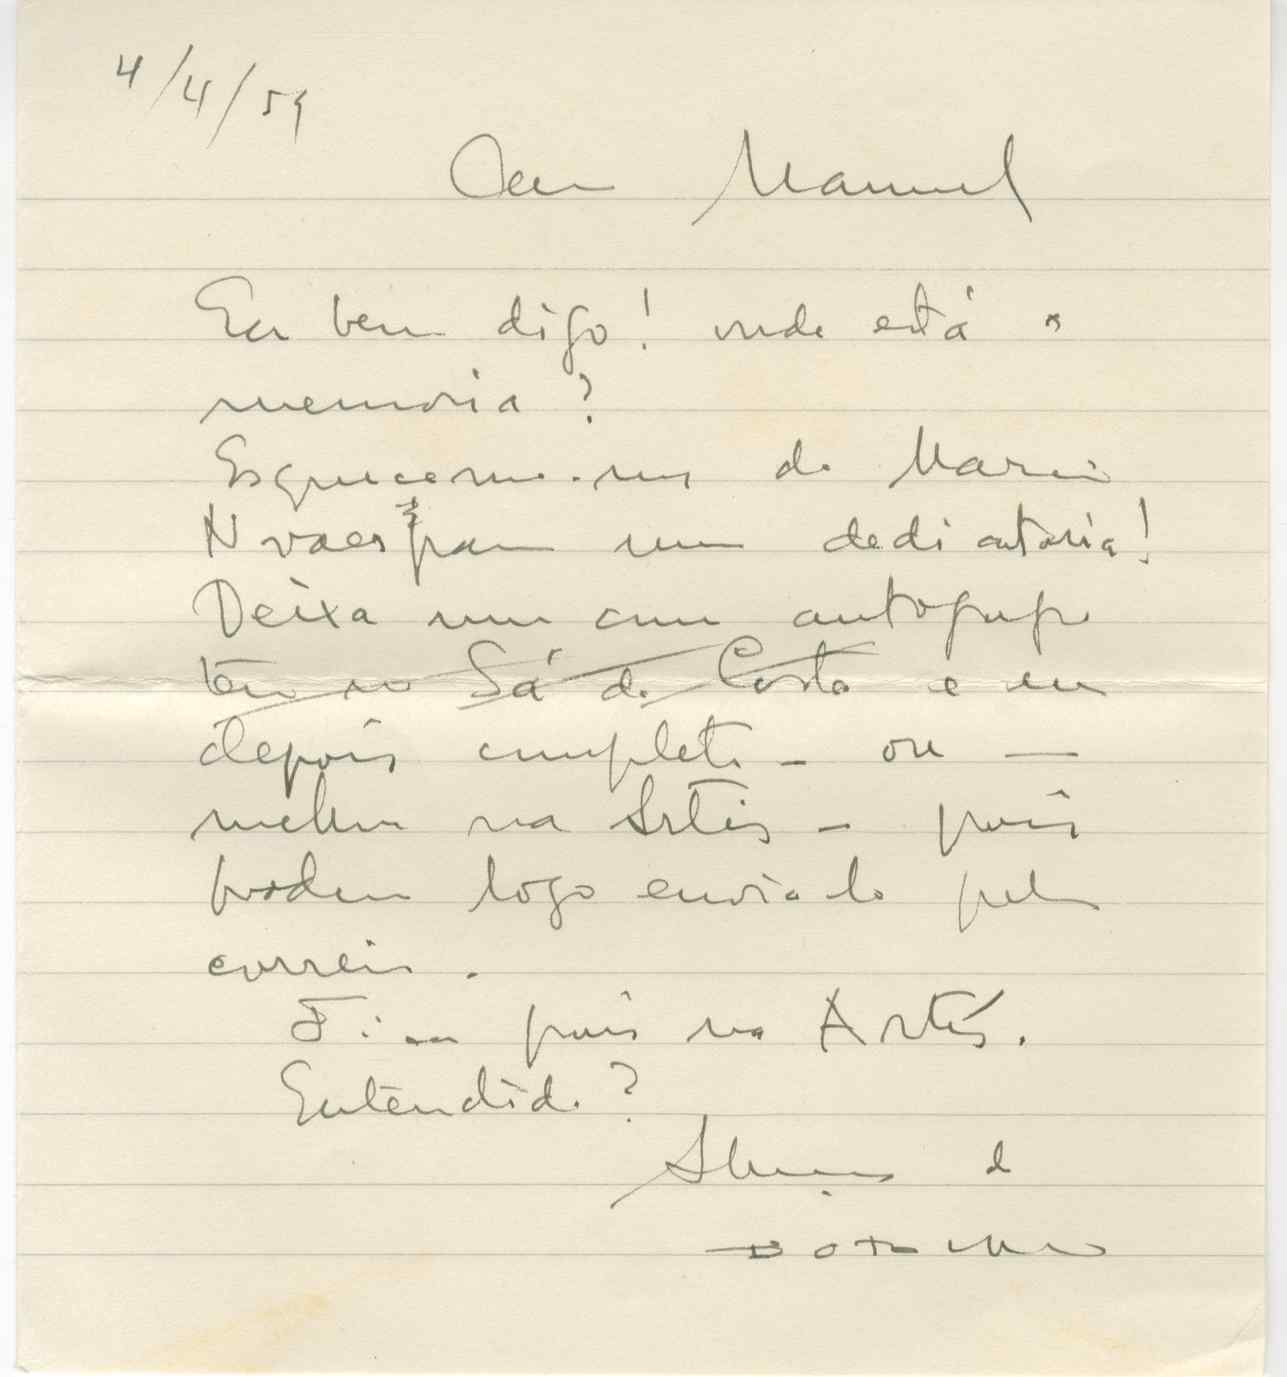 4/4/59
Caro Manuel
Eu bem digo! onde está a
memoria?
Esqueceme-nos do Mario
Novaes para uma dedicatoria!
Deixa um com autografo
teu na Sá da Costa e eu
depois completo - ou -
melhor na Artis - pois
podem logo enviá-lo pelo
correio.
Fica pois na Artis.
Entendido?
Abraço do
Botelho